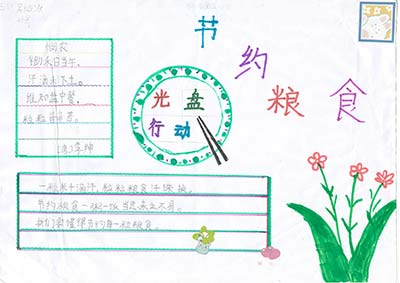 节约粮食
悯农
锄禾日当午,
汗滴禾下土。
谁知盘中餐,
粒粒皆辛苦。
李绅
光盘
行动
一粒米千滴汗,粒粒粮食汗珠换。
节约粮食
一粥一饭当思来之不易。
我们要懂得节约每一粒粮食。